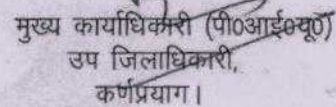 मुख्य कार्याधिकारी (पी0आई0यू0)
उप जिलाधिकारी,
कर्णप्रयाग।